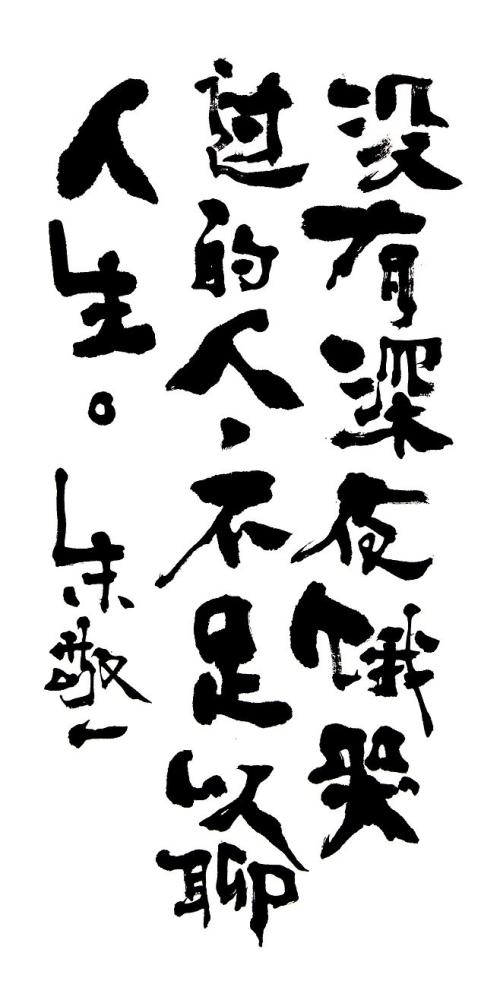 没有深夜饿哭
过的人，不足以聊
人生。朱敬一